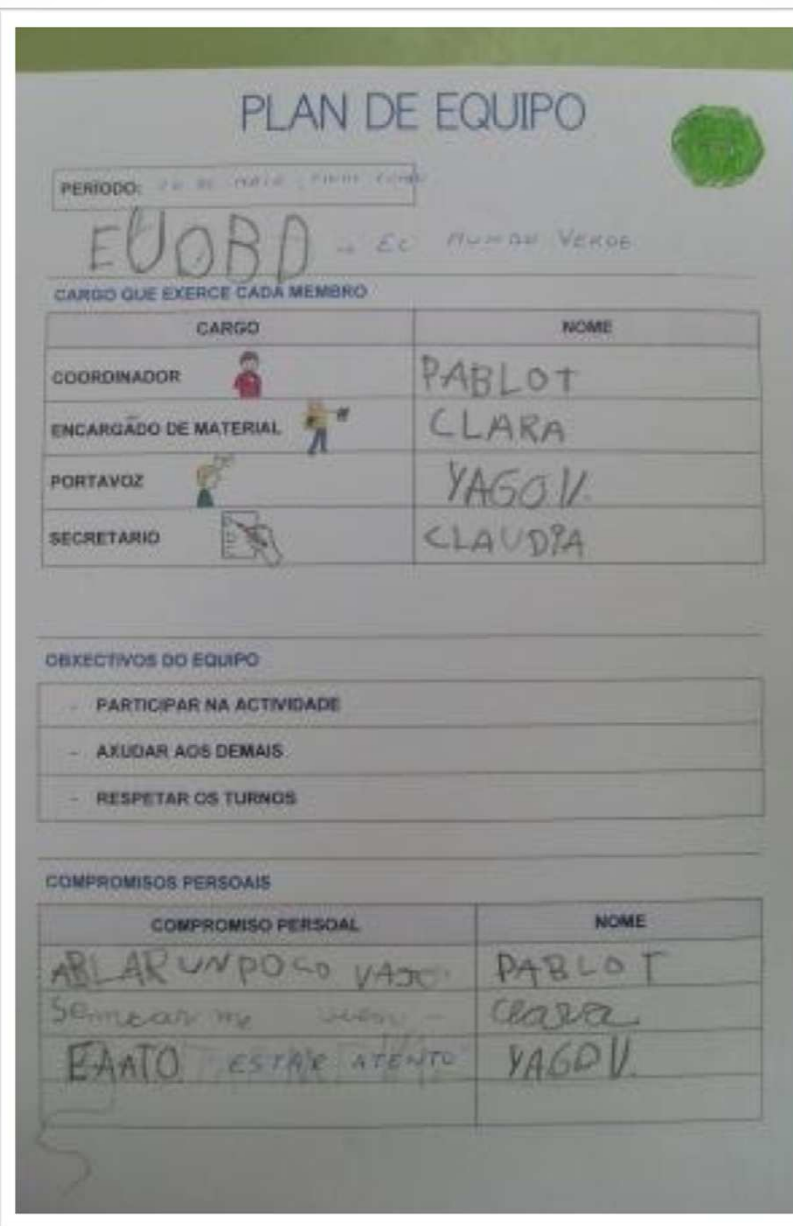 PLAN DE EQUIPO
PERÍODO: DE MAIO
EUOBD → EL MUNDO VERDE
CARGO QUE EXERCE CADA MEMBRO
CARGO NOME
COORDINADOR PABLO T
ENCARGADO DE MATERIAL CLARA
PORTAVOZ YAGO V.
SECRETARIO CLAUDIA
OBXECTIVOS DO EQUIPO
- PARTICIPAR NA ACTIVIDADE
- AXUDAR AOS DEMAIS
- RESPETAR OS TURNOS
COMPROMISOS PERSOAIS
COMPROMISO PERSOAL NOME
ABLAR UN POCO VAJO PABLO T
me Clara
EAATO ESTAR ATENTO YAGO V.